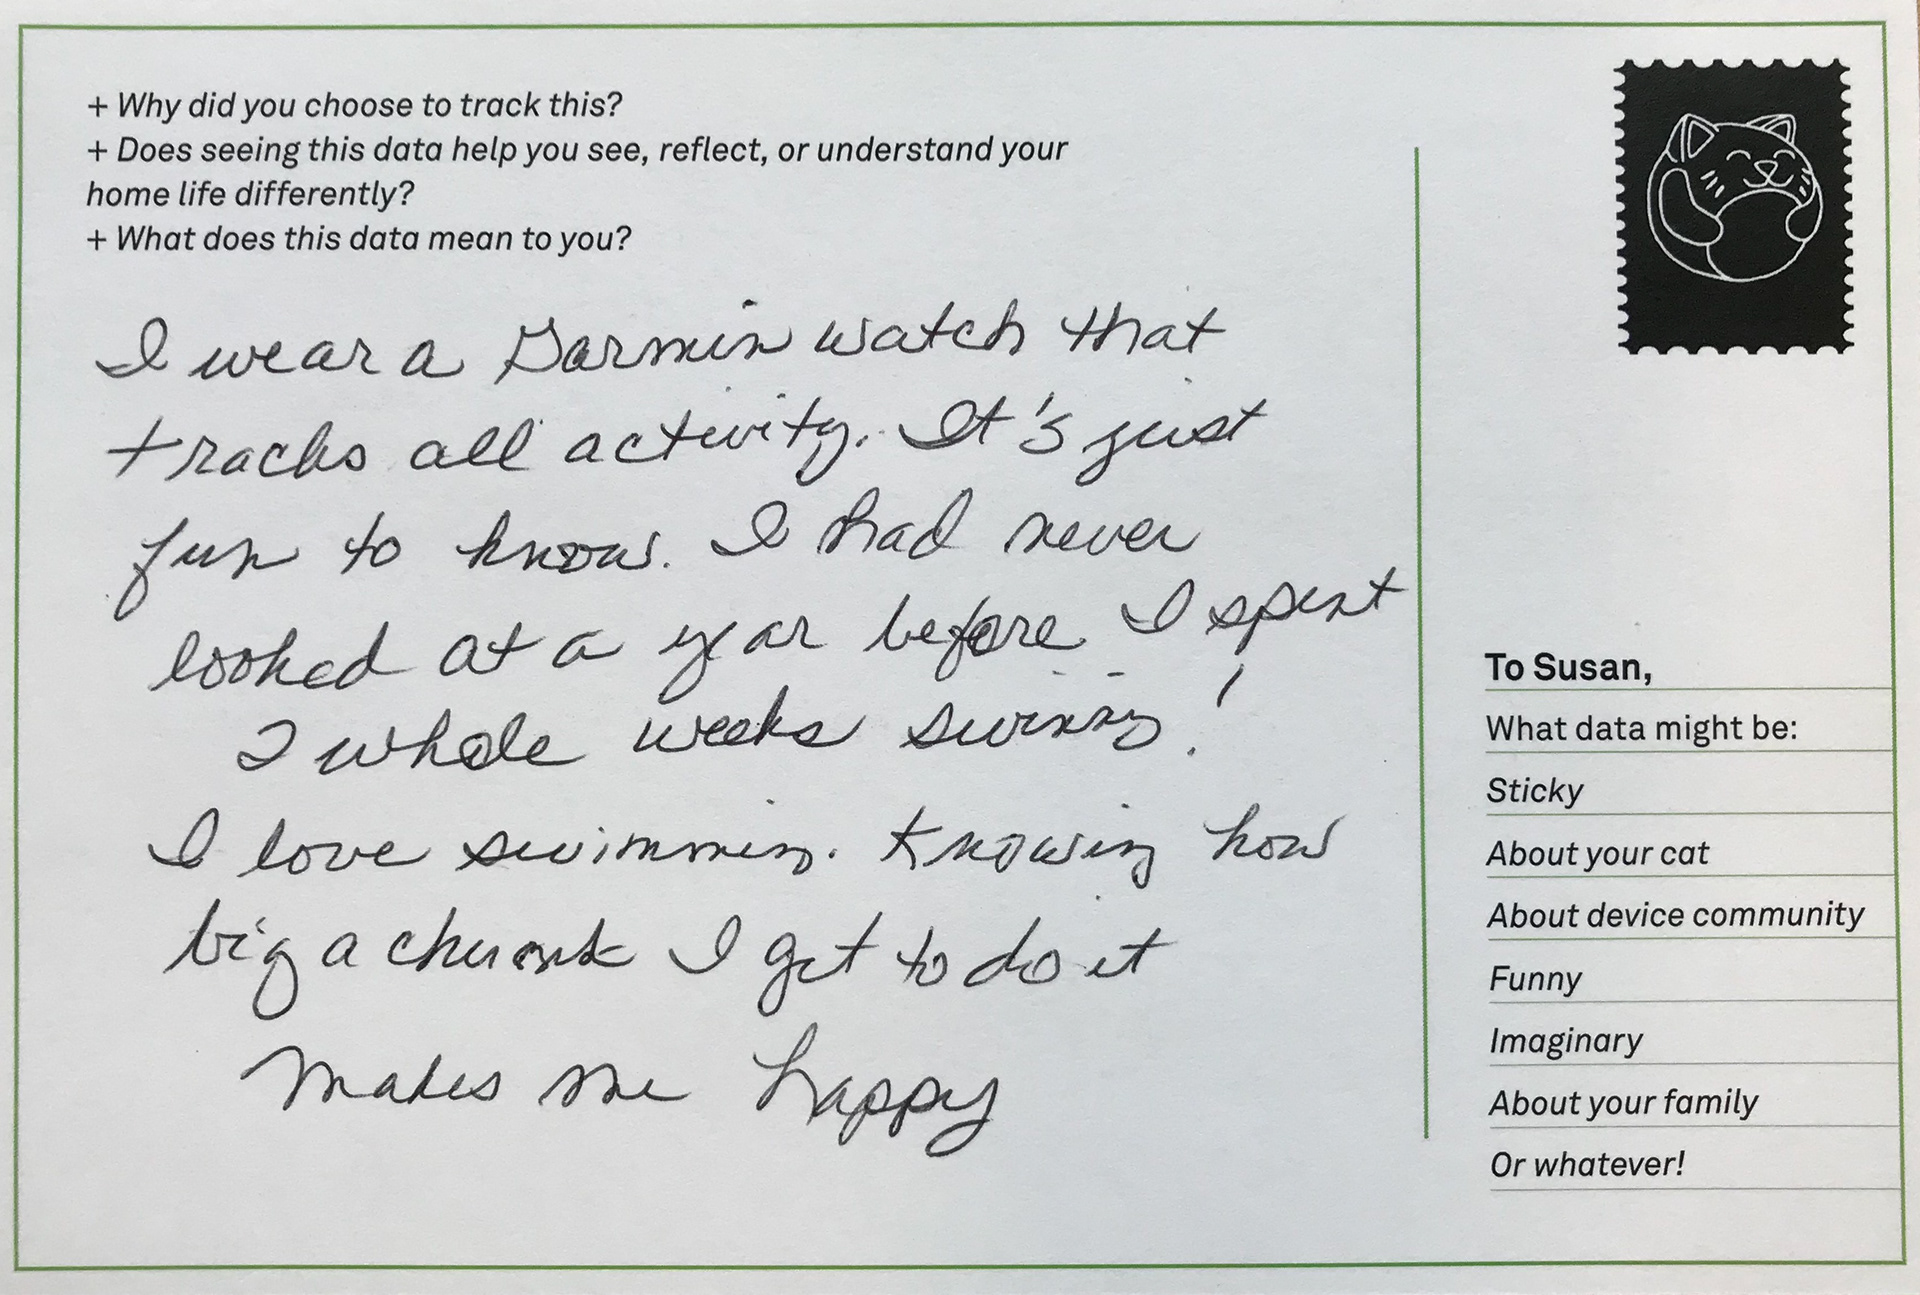 + Why did you choose to track this?
+ Does seeing this data help you see, reflect, or understand your
home life differently?
+ What does this data mean to you?
I wear a Garmin watch that
tracks all activity. It's just
fun to know. I had never
looked at a year before I spent
2 whole weeks swimming!
I love swimming. Knowing how
big a chunk I get to do it
makes me happy
To Susan,
What data might be:
Sticky
About your cat
About device community
Funny
Imaginary
About your family
Or whatever!